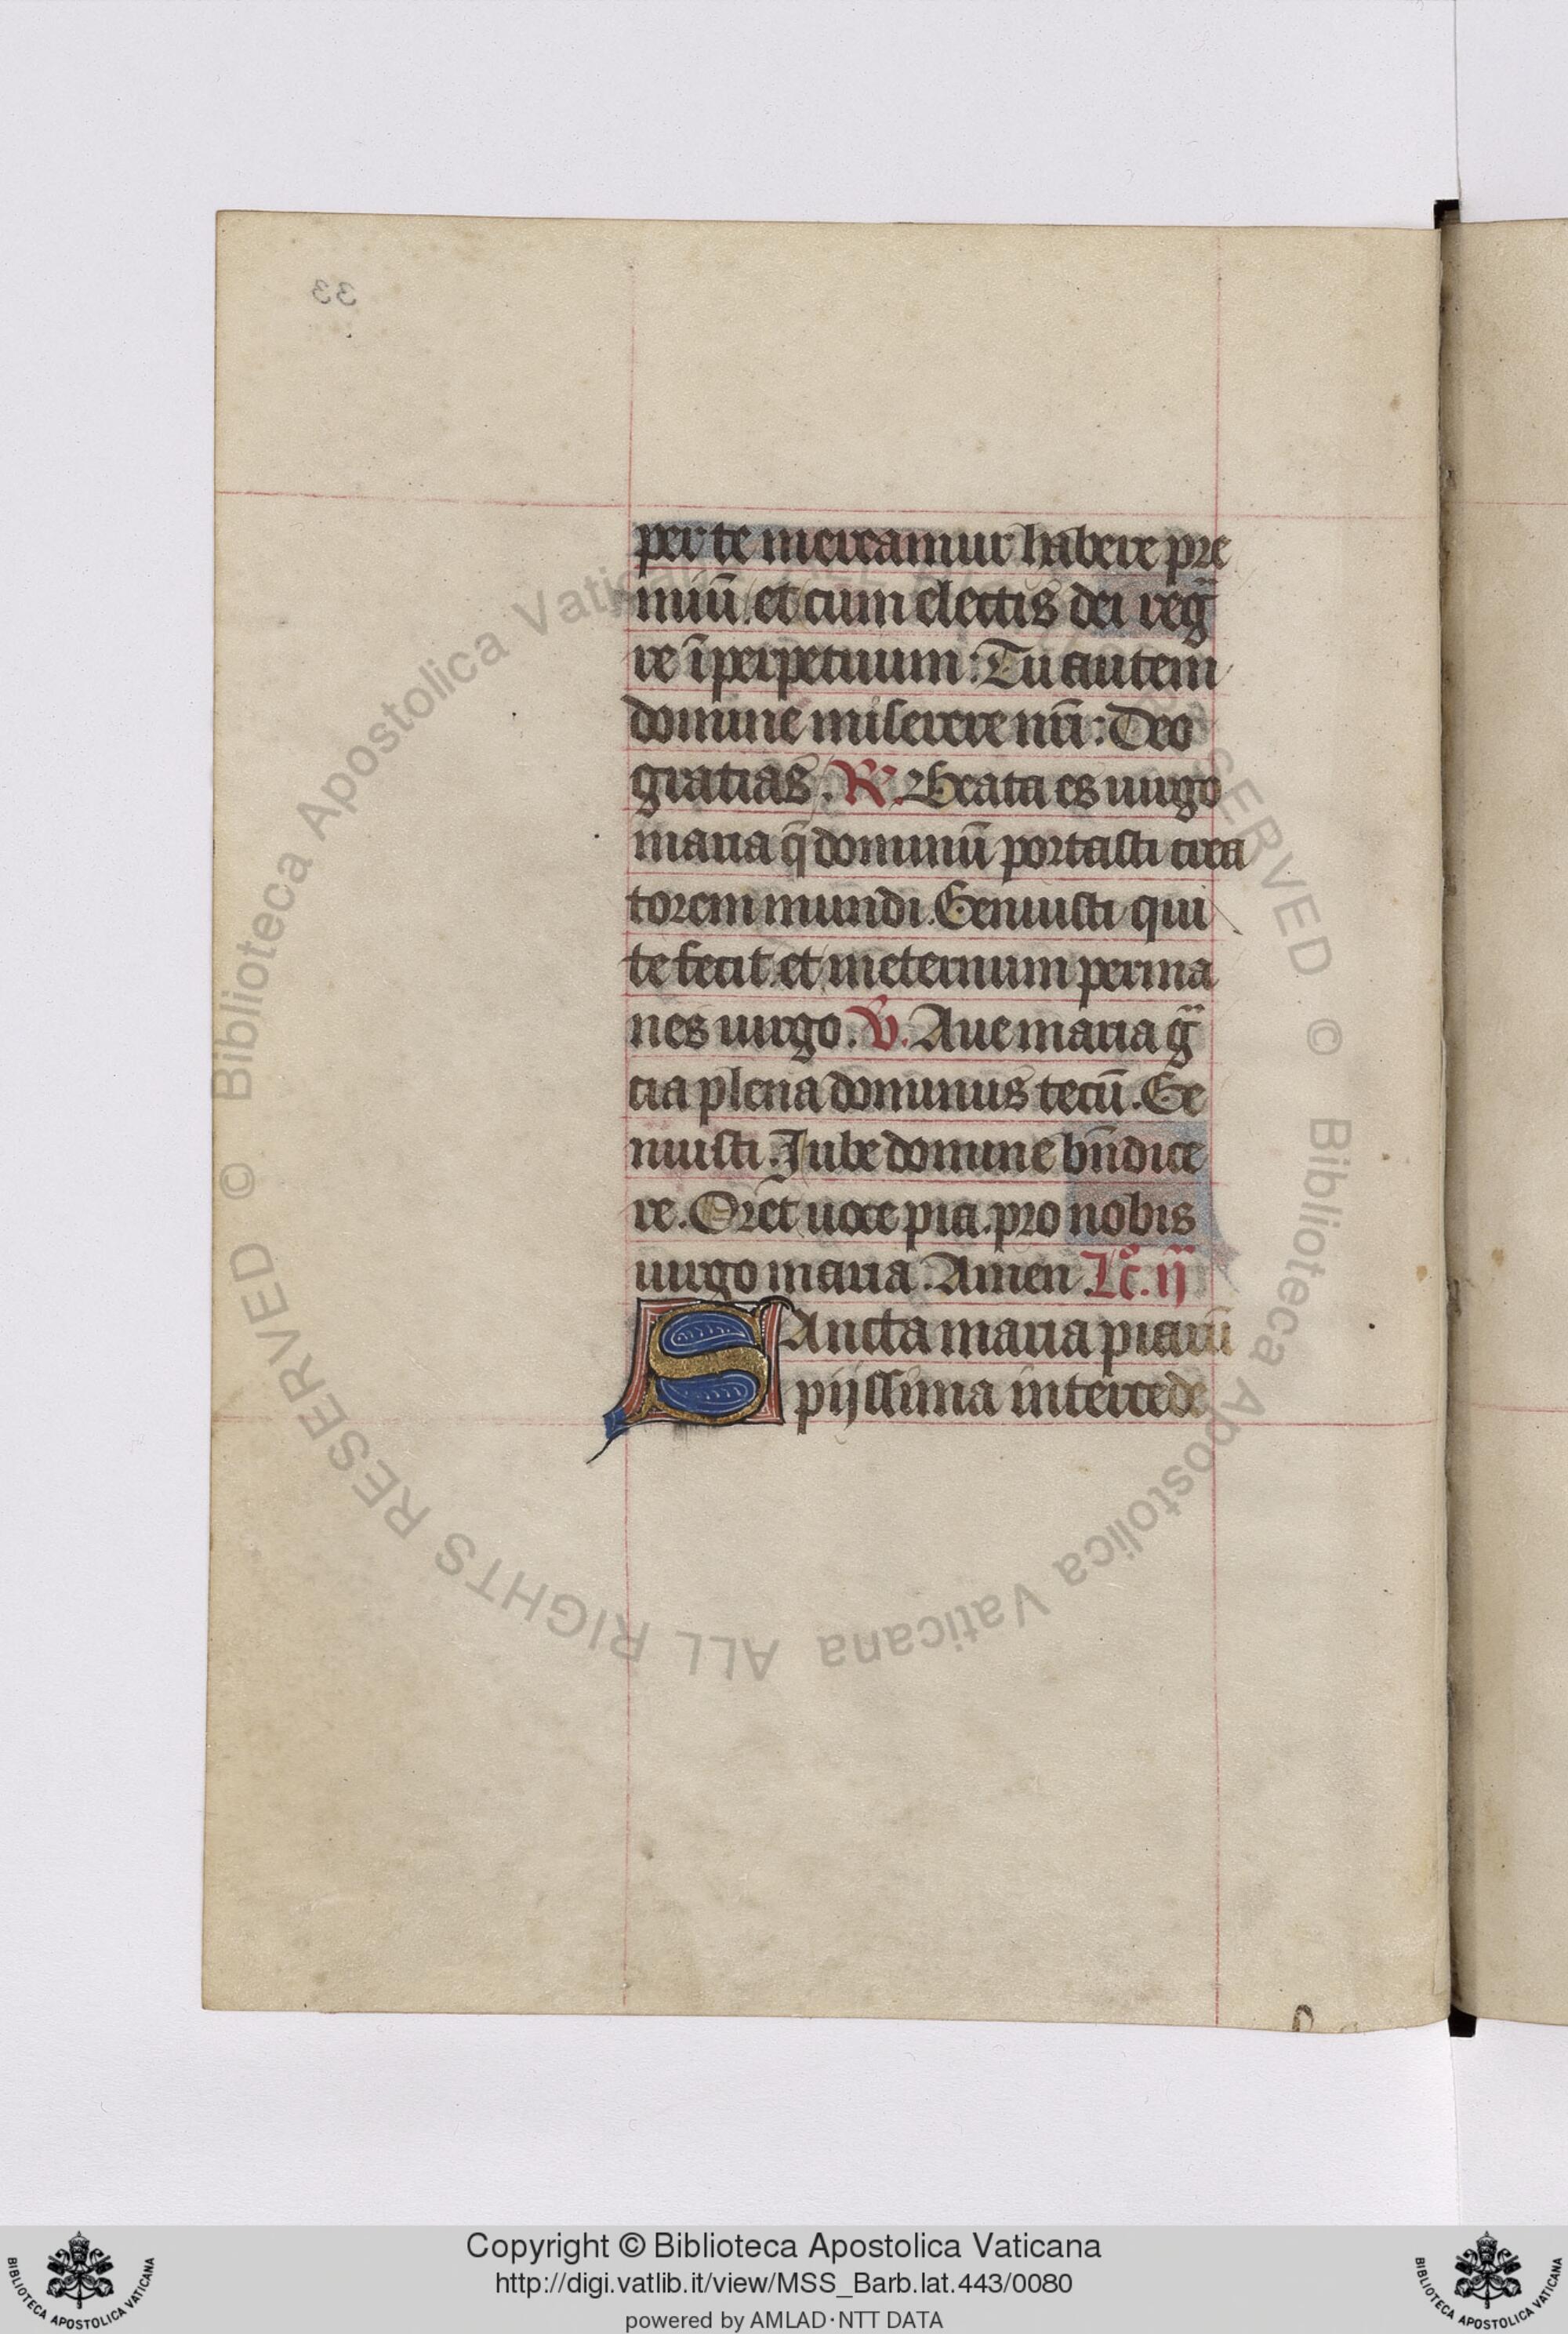 33
per te mereamur habere pre
miū. et cum electis dei reg̅
re ī perpetuum: Tu autem
domine miserere nr̄i: Deo
gratias. R̸. Beata es uirgo
maria q̄ dominū portasti crea
torem mundi. Genuisti qui
te fecit. et ineternum perma
nes uirgo. V̸. Aue maria g̅
cia plena dominus tecū. Ge
nuisti. Jube domine bn̄dice
re. Oret uoce pia. pro nobis
uirgo maria. Amen Lc̄. ij
SAncta maria piarū
pijssima intercede
© Biblioteca Apostolica Vaticana ALL RIGHTS RESERVED © Biblioteca Apostolica Vaticana ALL RIGHTS RESERVED
Copyright © Biblioteca Apostolica Vaticana
http://digi.vatlib.it/view/MSS_Barb.lat.443/0080
powered by AMLAD·NTT DATA
BIBLIOTECA APOSTOLICA VATICANA
BIBLIOTECA APOSTOLICA VATICANA